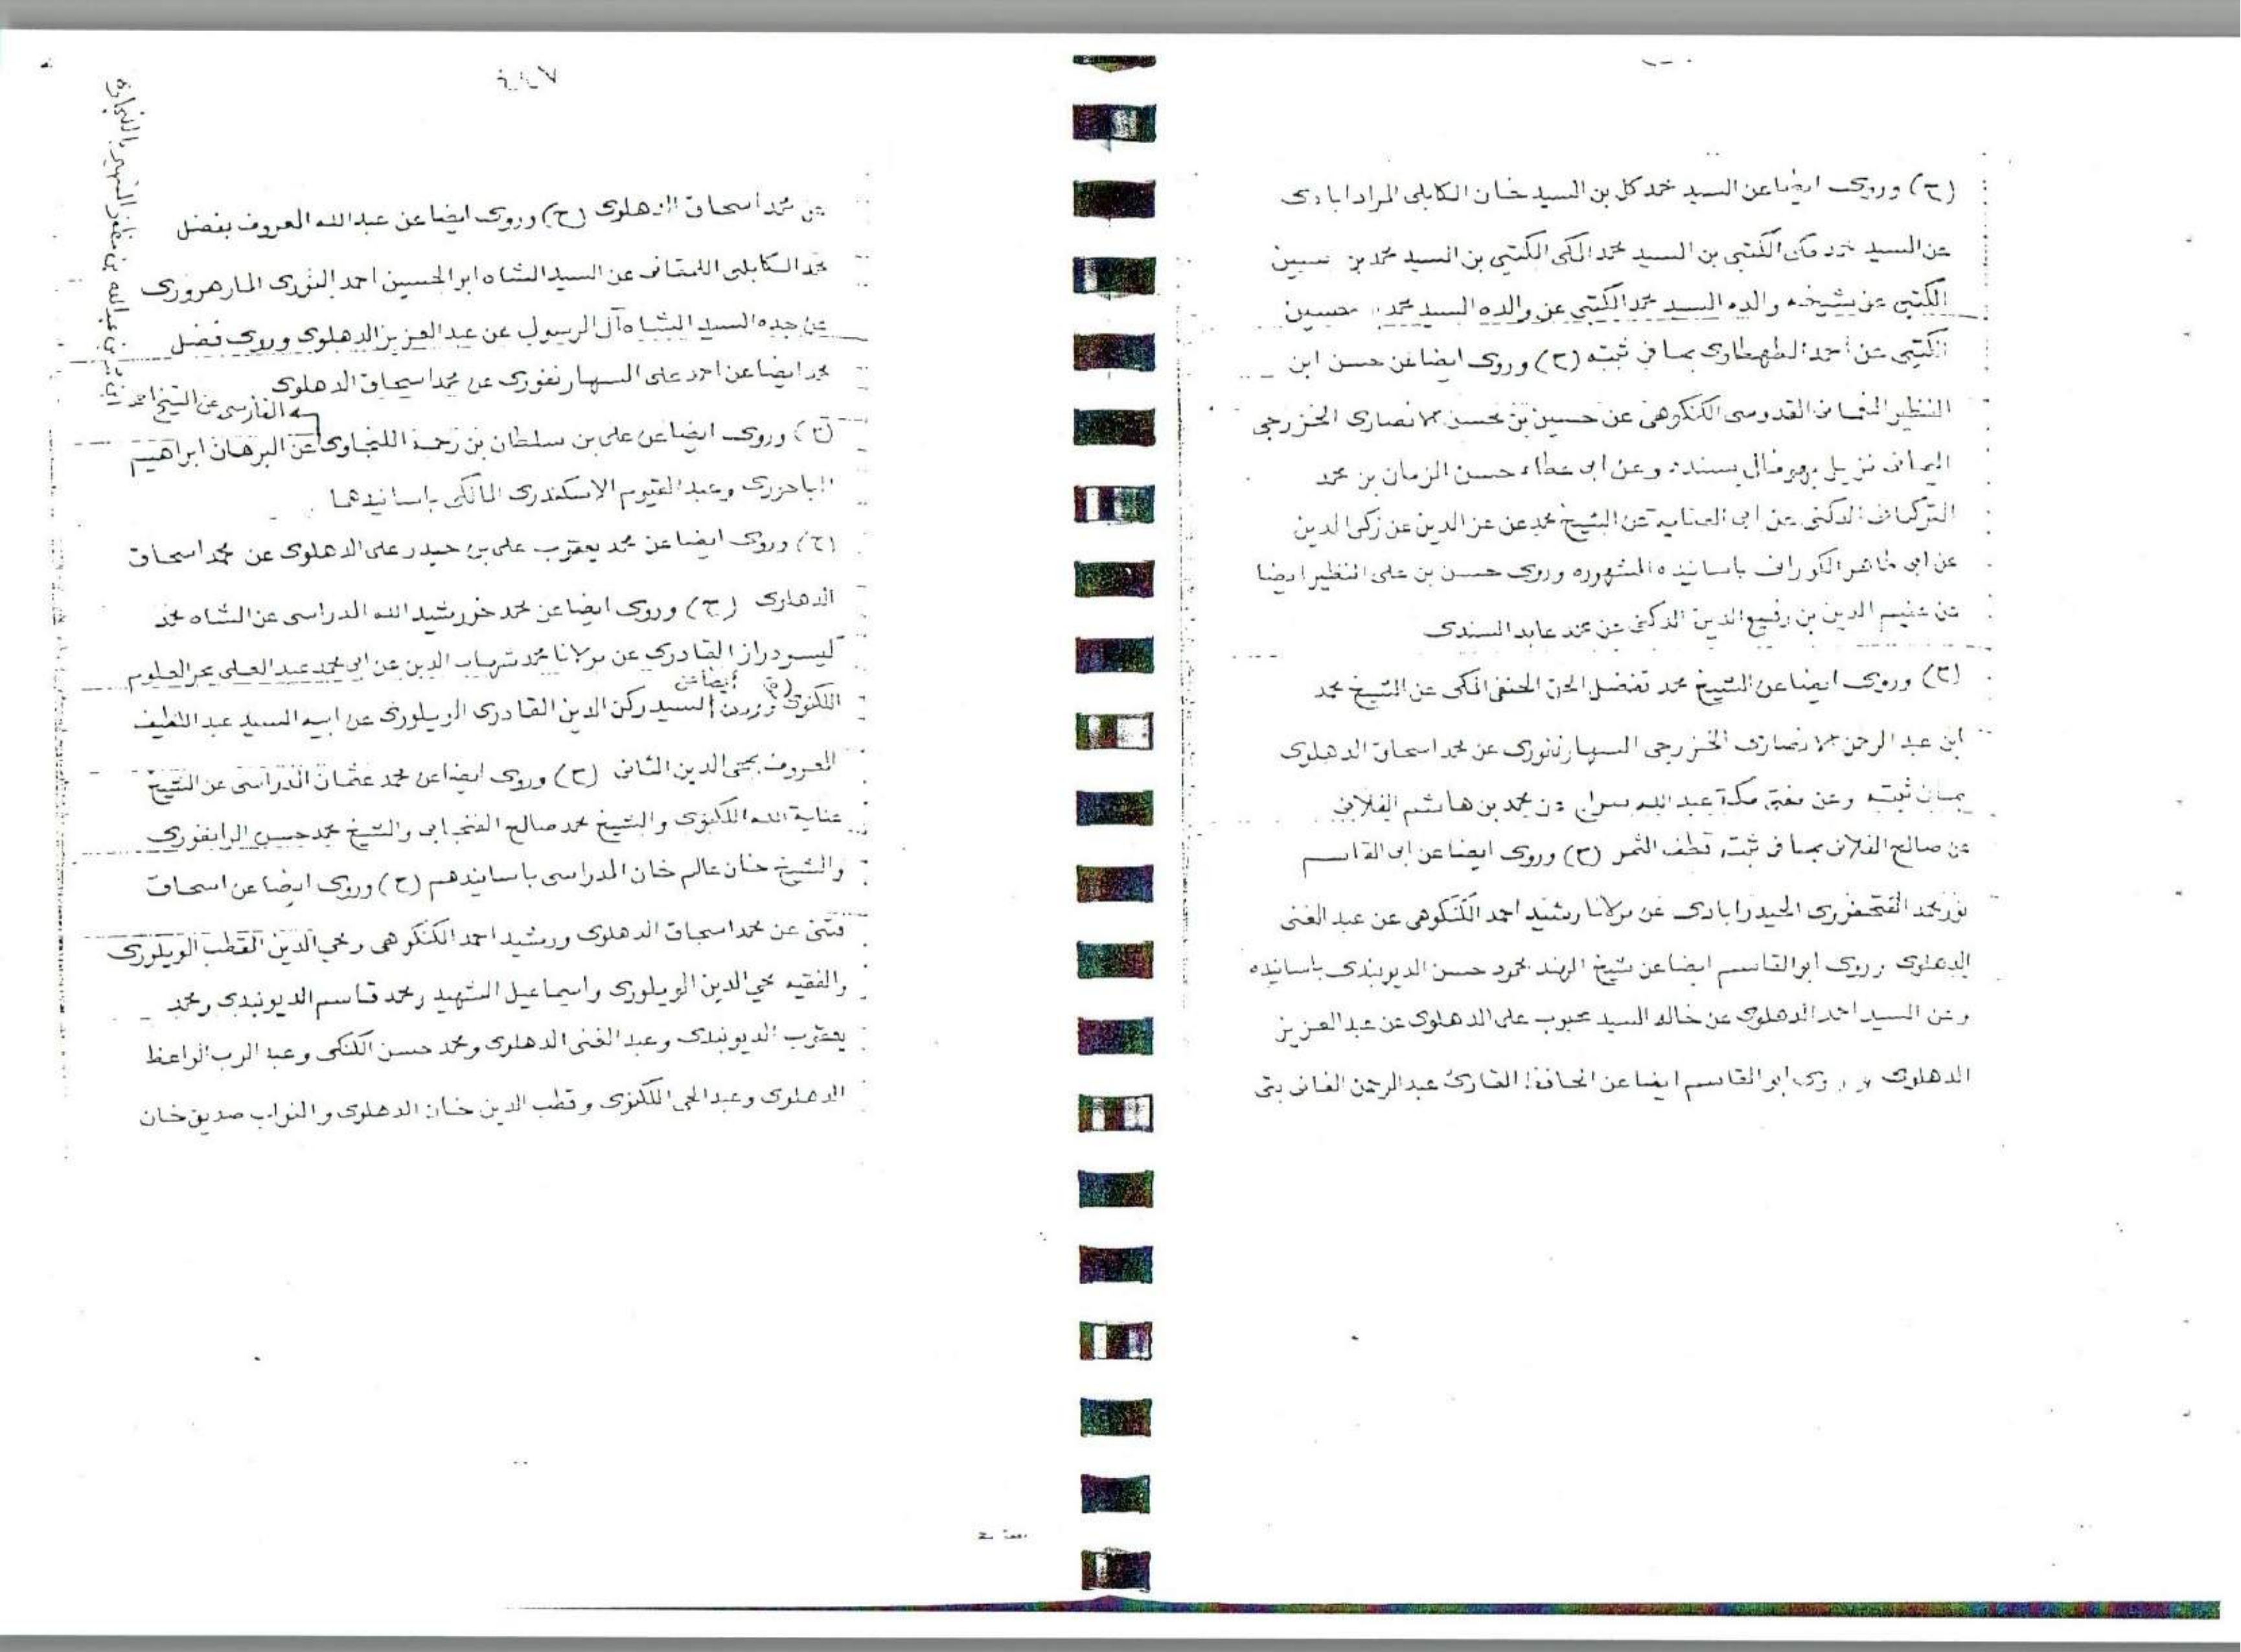 (ح) وروى ايضا عن السيد محمد كل بن السيد خان الكابلى المرادابادى
عن السيد محمد مكى الكتبى بن السيد محمد المكى الكتبى بن السيد محمد بن حسين
الكتبى عن شيخه والده السيد محمد الكتبى عن والده السيد محمد حسين
الكتبى عن احمد الطهطاوى بما فى ثبته (ح) وروى ايضا عن حسن ابن
النظير النعمانى القدوسى الكنكوهى عن حسين بن محسن الانصارى الخزرجى
اليمانى نزيل بهوفال بسنده وعن ابى عطاء حسن الزمان بن محمد
التركمانى الدكنى عن ابى العناية عن الشيخ محمد عن عز الدين عن زكى الدين
عن ابى طاهر الكورانى باسانيده المشهوره وروى حسن بن على النظير ايضا
عن عظيم الدين بن رفيع الدين الدكنى عن محمد عابد السندى
(ح) وروى ايضا عن الشيخ محمد تفضل الحق الحنفى المكى عن الشيخ محمد
ابن عبد الرحمن الانصارى الخزرجى السهارنفورى عن محمد اسحاق الدهلوى
بما فى ثبته وعن مفتى مكة عبد الله سراج عن محمد بن هاشم الفلانى
عن صالح الفلانى بما فى ثبته قطف الثمر (ح) وروى ايضا عن ابى القاسم
نور محمد الفتحفورى الحيدرابادى عن مولانا رشيد احمد الكنكوهى عن عبد الغنى
الدهلوى وروى ابو القاسم ايضا عن شيخ الهند محمود حسن الديوبندى باسانيده
وعن السيد احمد الدهلوى عن خاله السيد محبوب على الدهلوى عن عبد العزيز
الدهلوى وروى ابو القاسم ايضا عن الحافظ القارئ عبد الرحمن الفانى بتى
عن محمد اسحاق الدهلوى (ح) وروى ايضا عن عبد الله المعروف بفضل
محمد الكابلى اللمقانى عن السيد الشاه ابو الحسين احمد النورى المارهرورى
عن جده السيد الشاه آل الرسول عن عبد العزيز الدهلوى وروى فضل
محمد ايضا عن احمد على السهارنفورى عن محمد اسحاق الدهلوى
الفارسى عن الشيخ احمد
ابن عبد الله بن مظفر الشهير
(ح) وروى ايضا عن على بن سلطان بن رحمة اللنجاوى عن البرهان ابراهيم
الباجورى وعبد القيوم الاسكندرى المالكى باسانيدهما
(ح) وروى ايضا عن محمد يعقوب على بن حيدر على الدهلوى عن محمد اسحاق
الدهلوى (ح) وروى ايضا عن محمد خورشيد الله المدراسى عن الشاه محمد
كيسودراز القادرى عن مولانا محمد شهاب الدين عن ابى محمد عبد العلى بحر العلوم
(ح) ايضا عن
اللكنوى وروى السيد ركن الدين القادرى الويلورى عن ابيه السيد عبد اللطيف
المعروف بمحى الدين الثانى (ح) وروى ايضا عن محمد عثمان المدراسى عن الشيخ
عناية الله اللكنوى والشيخ محمد صالح الفنجابى والشيخ محمد حسن الرامفورى
والشيخ خان عالم خان المدراسى باسانيدهم (ح) وروى ايضا عن اسحاق
فتنى عن محمد اسحاق الدهلوى ورشيد احمد الكنكوهى ومحي الدين القطب الويلورى
والفقيه محي الدين الويلورى واسماعيل الشهيد ومحمد قاسم الديوبندى ومحمد
يعقوب الديوبندى وعبد الغنى الدهلوى ومحمد حسن الكنكى وعبد الرب الواعظ
الدهلوى وعبد الحى اللكنوى وقطب الدين خان الدهلوى والنواب صديق خان